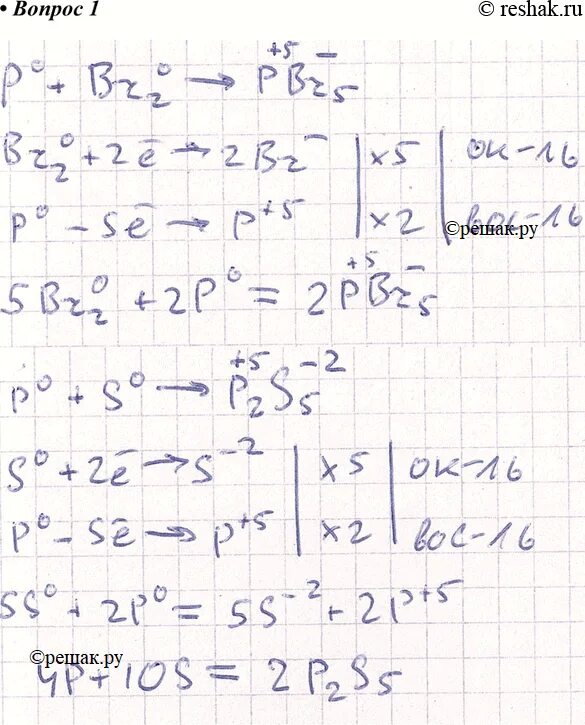 • Вопрос 1
© reshak.ru
P⁰ + Br₂⁰ → P⁺⁵Br₅⁻
Br₂⁰ + 2ē → 2Br⁻ | ×5 | ок-ль
P⁰ − 5ē → P⁺⁵ | ×2 | вос-ль
©решак.ру
5Br₂⁰ + 2P⁰ = 2P⁺⁵Br₅⁻
P⁰ + S⁰ → P₂⁺⁵S₅⁻²
S⁰ + 2ē → S⁻² | ×5 | ок-ль
P⁰ − 5ē → P⁺⁵ | ×2 | вос-ль
5S⁰ + 2P⁰ = 5S⁻² + 2P⁺⁵
©решак.ру
4P + 10S = 2P₂S₅